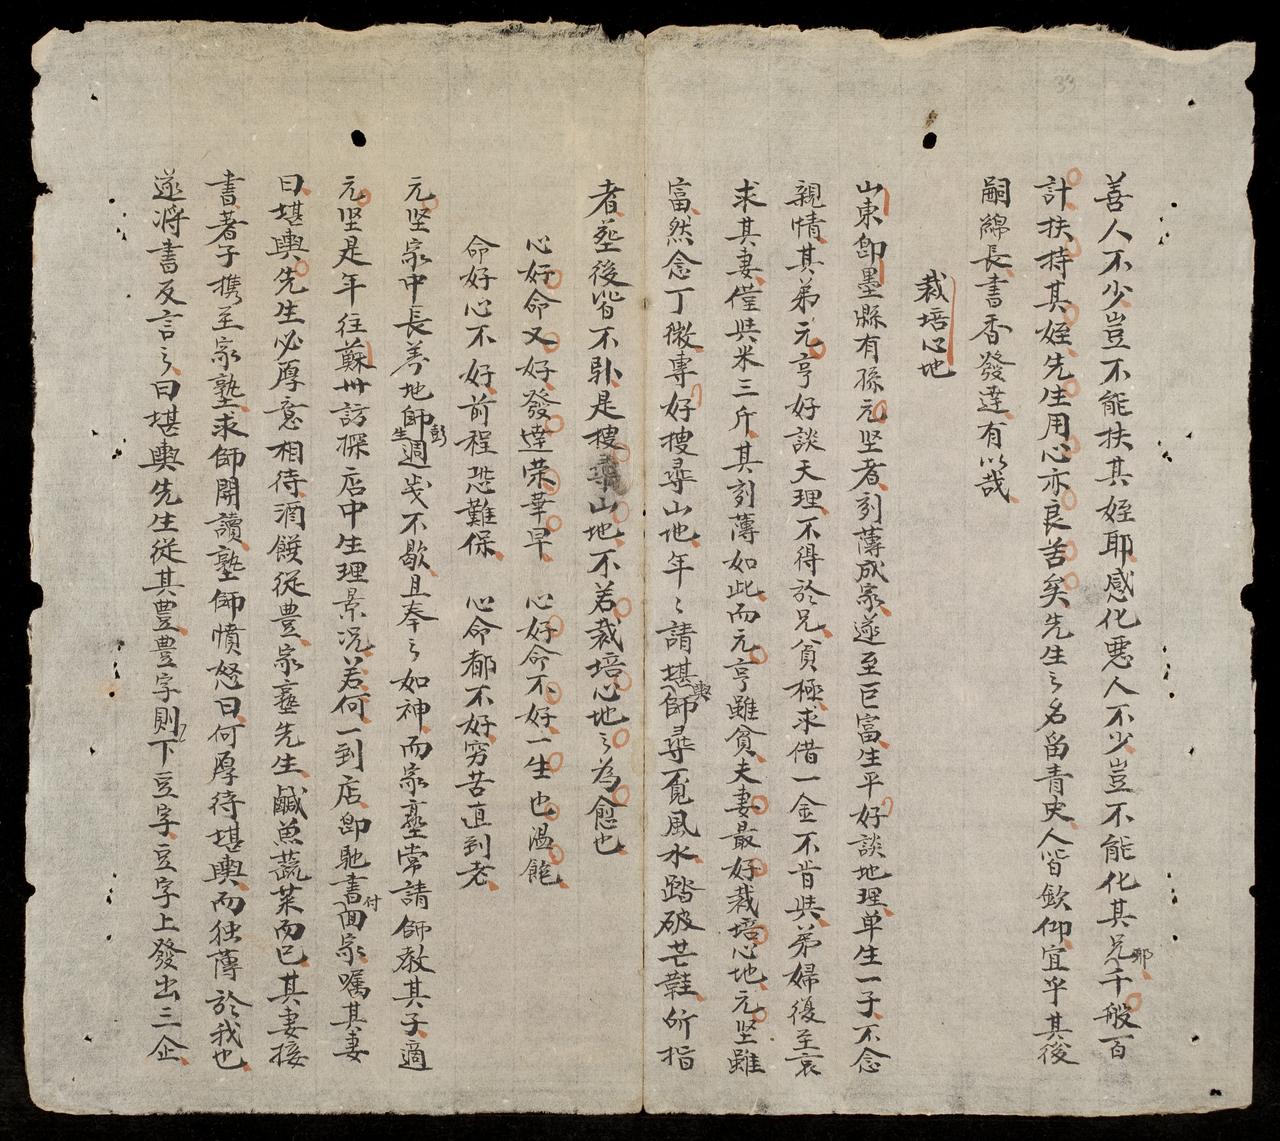 善人不少豈不能扶其姪耶感化惡人不少豈不能化其兄耶千般百
計扶持其姪先生用心亦良苦矣先生之名留青史人皆欽仰宜乎其後
嗣綿長書香發達有以哉
栽培心地
山東卽墨縣有孫元坚者刻薄成家遂至巨富生平好談地理单生一子不念
親情其弟元亨好談天理不得於兄貧極求借一金不肯與弟婦復至哀
求其妻僅與米三斤其刻薄如此而元亨雖貧夫妻最好栽培心地元坚雖
富然念丁微專好搜尋山地年〻請堪輿師尋覓風水踏破芒鞋所指
者塟後皆不卧是搜尋山地不若栽培心地之為愈也
心好命又好發達荣華早 心好命不好一生也温飽
命好心不好前程恐難保 心命都不好穷苦直到老
元坚家中長养地師彭生週歲不歇且奉之如神而家塾常請師教其子適
元坚是年往蘇州訪探店中生理景况若何一到店卽馳書付囬家嘱其妻
曰堪輿先生必厚意相待酒饌從豊家塾先生鹹魚蔬菜而已其妻接
書著子携至家塾求師開讀塾師憤怒曰何厚待堪輿而独薄於我也
遂将書反言之曰堪輿先生從其豊豊字則下豆字豆字上發出三企